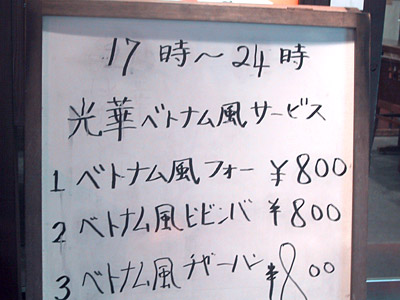 17時～24時
光華ベトナム風サービス
1 ベトナム風フォー ¥800
2 ベトナム風ビビンバ ¥800
3 ベトナム風チャーハン ¥800